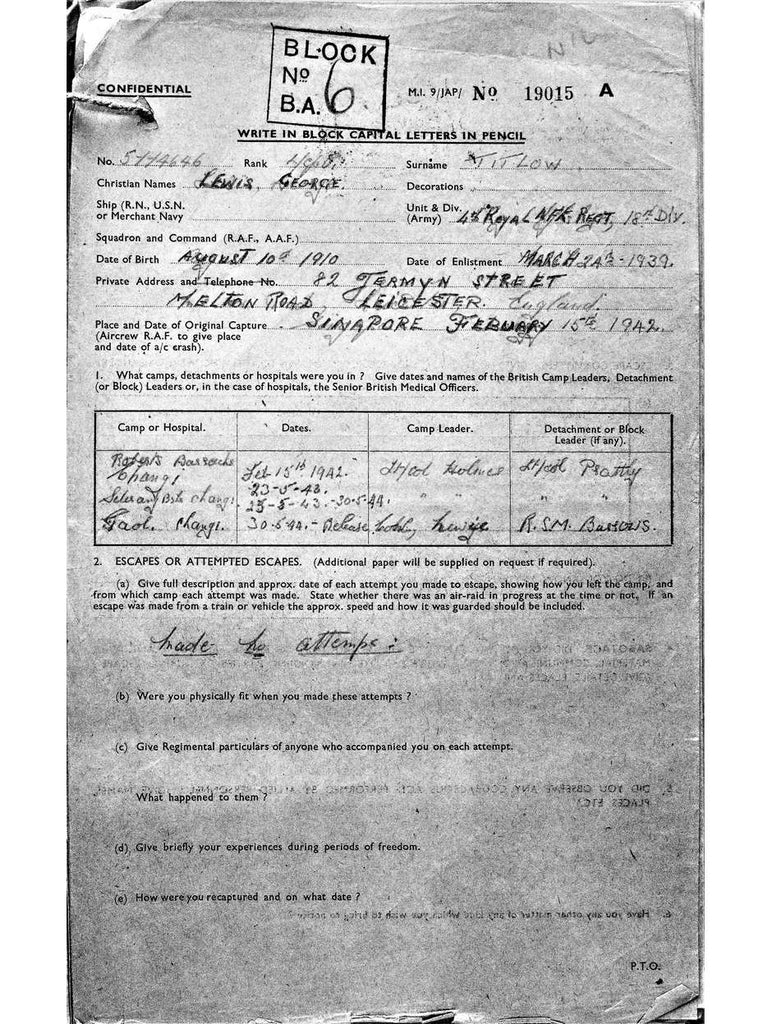 BLOCK
No
B.A. 6
CONFIDENTIAL
M.I. 9/JAP/ No 19015 A
WRITE IN BLOCK CAPITAL LETTERS IN PENCIL
No. 5774646 Rank L/Cpl. Surname TITLOW
Christian Names LEWIS GEORGE. Decorations
Ship (R.N., U.S.N.
or Merchant Navy
Unit & Div.
(Army) 4th Royal Nfk Regt, 18th Div.
Squadron and Command (R.A.F., A.A.F.)
Date of Birth August 10th 1910 Date of Enlistment MARCH 24th - 1939.
Private Address and Telephone No. 82 JERMYN STREET
MELTON ROAD, LEICESTER. England.
Place and Date of Original Capture SINGAPORE FEBUARY 15TH 1942.
(Aircrew R.A.F. to give place
and date of a/c crash).
1. What camps, detachments or hospitals were you in ? Give dates and names of the British Camp Leaders, Detachment
(or Block) Leaders or, in the case of hospitals, the Senior British Medical Officers.
Camp or Hospital. Dates. Camp Leader. Detachment or Block
Leader (if any).
Roberts Barracks
Changi Feb 15th 1942. Lt/Col Holmes Lt/Col
23-5-43.
Selerang Bks Changi. 23-5-43.-30-5-44. " " " "
Gaol. Changi. 30.5.44.- Release R.S.M.
2. ESCAPES OR ATTEMPTED ESCAPES. (Additional paper will be supplied on request if required).
(a) Give full description and approx. date of each attempt you made to escape, showing how you left the camp, and
from which camp each attempt was made. State whether there was an air-raid in progress at the time or not. If an
escape was made from a train or vehicle the approx. speed and how it was guarded should be included.
Made no attemps:
(b) Were you physically fit when you made these attempts ?
(c) Give Regimental particulars of anyone who accompanied you on each attempt.
What happened to them ?
(d) Give briefly your experiences during periods of freedom.
(e) How were you recaptured and on what date ?
P.T.O.